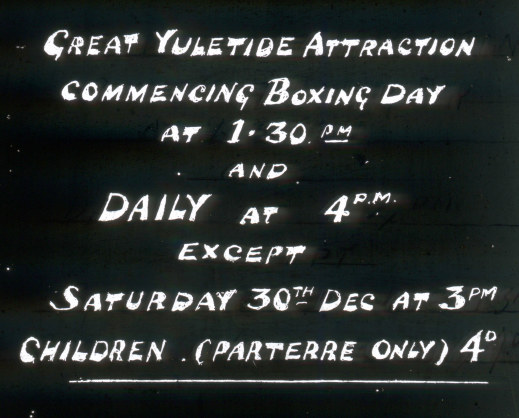 GREAT YULETIDE ATTRACTION
COMMENCING BOXING DAY
AT 1·30 PM
AND
DAILY AT 4 P.M.
EXCEPT
SATURDAY 30TH DEC AT 3PM
CHILDREN . (PARTERRE ONLY) 4D